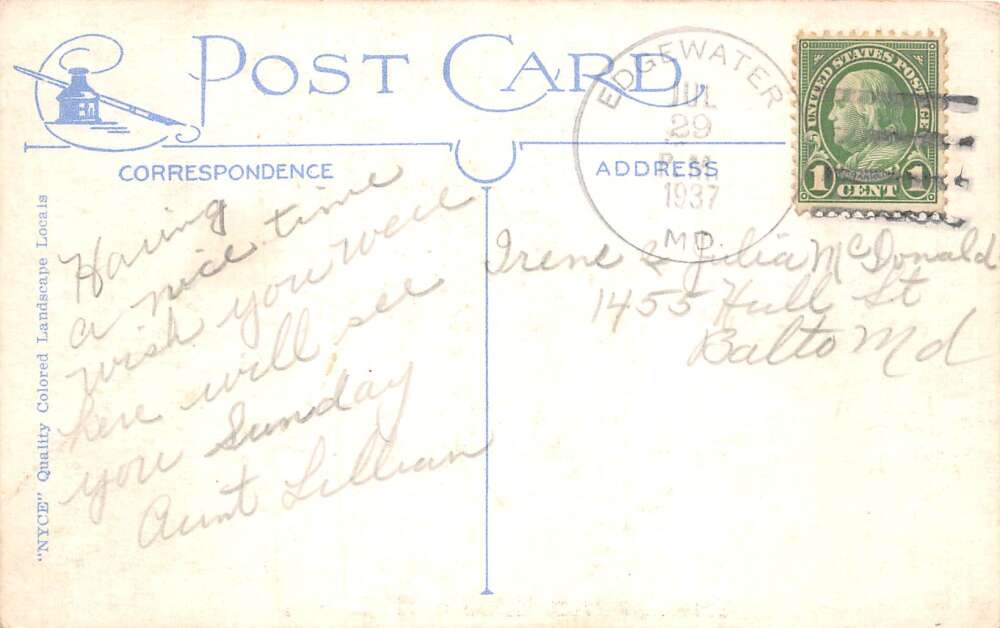 POST CARD
CORRESPONDENCE
ADDRESS
"NYCE" Quality Colored Landscape Locals
EDGEWATER
JUL
29
P.M.
1937
MD.
UNITED STATES POSTAGE
1 CENT 1
FRANKLIN
Having
a nice time
wish you were
here will see
you Sunday
Aunt Lillian
Irene & Julia McDonald
1455 Hull St
Balto Md